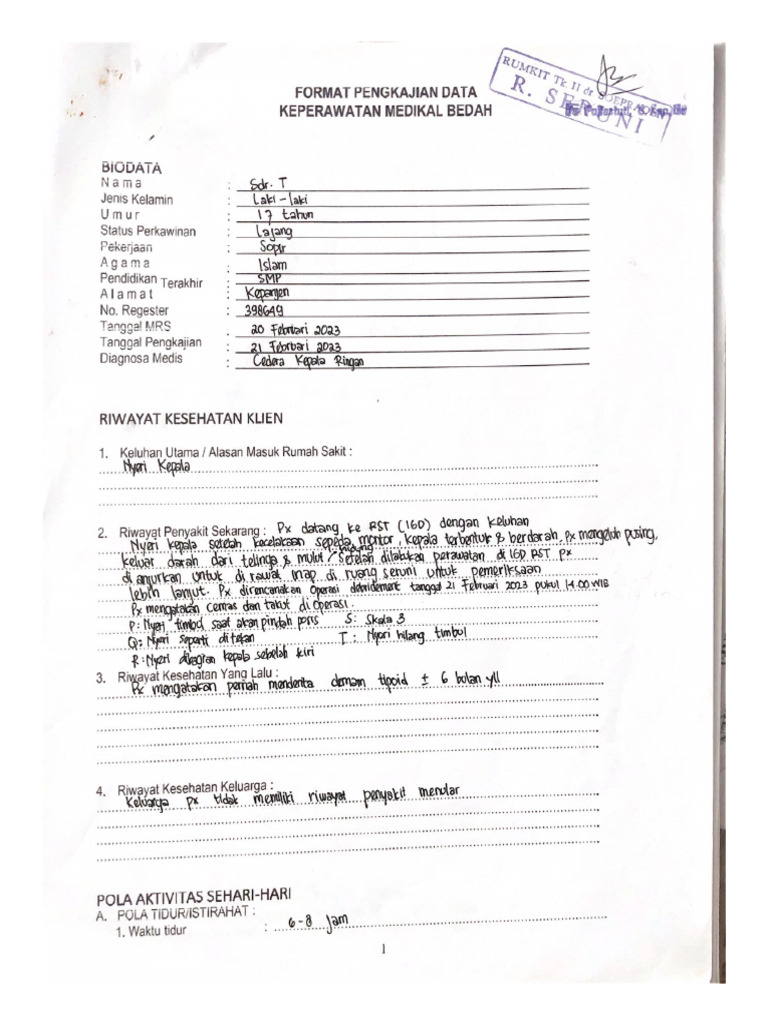 RUMKIT Tk. II dr SOEPRAOEN
R. SERUNI
FORMAT PENGKAJIAN DATA
KEPERAWATAN MEDIKAL BEDAH
BIODATA
N a m a : Sdr. T
Jenis Kelamin : Laki-laki
U m u r : 17 tahun
Status Perkawinan : Lajang
Pekerjaan : Sopir
A g a m a : Islam
Pendidikan Terakhir : SMP
A l a m a t : Kepanjen
No. Regester : 398649
Tanggal MRS : 20 Februari 2023
Tanggal Pengkajian : 21 Februari 2023
Diagnosa Medis : Cedera Kepala Ringan
RIWAYAT KESEHATAN KLIEN
1. Keluhan Utama / Alasan Masuk Rumah Sakit :
Nyeri Kepala
2. Riwayat Penyakit Sekarang : Px datang ke RST (IGD) dengan keluhan
Nyeri kepala setelah kecelakaan sepeda montor, kepala terbentur & berdarah, Px mengeluh pusing,
keluar darah dari telinga & mulut / hidung. Setelah dilakukan perawatan di IGD RST px
dianjurkan untuk di rawat inap di ruang seruni untuk pemeriksaan
lebih lanjut. Px direncanakan operasi debridemant tanggal 21 Februari 2023 pukul 14.00 WIB
Px mengatakan cemas dan takut di operasi.
P: Nyeri timbul saat akan pindah posis S: Skala 3
Q: Nyeri seperti di tekan T: Nyeri hilang timbul
R: Nyeri dibagian kepala sebelah kiri
3. Riwayat Kesehatan Yang Lalu :
Px mengatakan pernah menderita demam tipoid ± 6 bulan yll
4. Riwayat Kesehatan Keluarga :
Keluarga px tidak memiliki riwayat penyakit menular
POLA AKTIVITAS SEHARI-HARI
A. POLA TIDUR/ISTIRAHAT :
1. Waktu tidur : 6-8 Jam
1